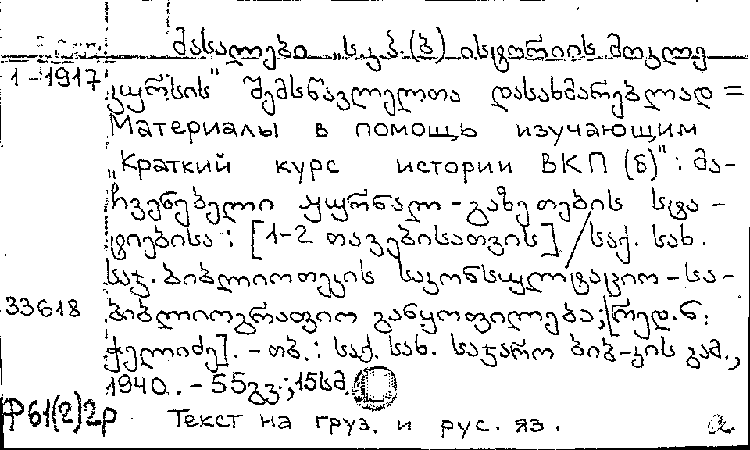 მასალები „ს.კ.პ.(ბ) ისტორიის მოკლე
1-1917 კურსის" შემსწავლელთა დასახმარებლად =
Материалы в помощь изучающим
„Краткий курс истории ВКП(б)": მა-
ჩვენებელი ჟურნალ-გაზეთების სტა-
ტიებისა: [1-2 თავებისათვის] / საქ. სახ.
საჯ. ბიბლიოთეკის საკონსულტაციო-სა-
33618 ბიბლიოგრაფიო განყოფილება; [რედ. ნ.
ჭელიძე]. - თბ.: საქ. სახ. საჯარო ბიბ-კის გამ.,
1940. - 55გვ.; 15სმ.
Ф61(2)2р Текст на груз. и рус. яз. а.